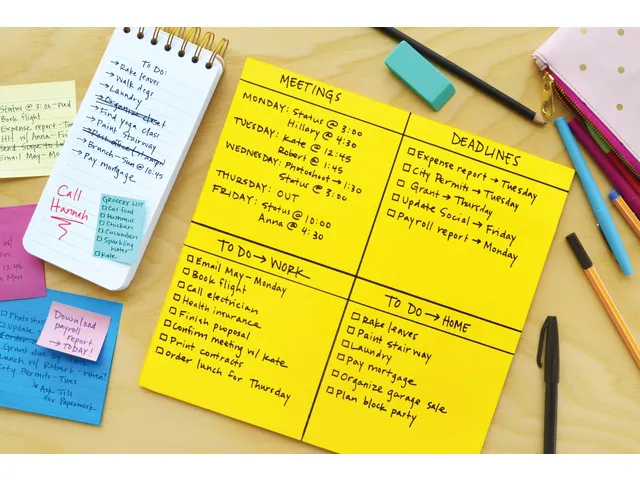 Status @ 3:00-Wed
Book flight
Expense report-Tu
HH w/ Anna-Fri
Send scope to
Email May-Mon
TO DO:
→Rake leaves
→Walk dogs
→Laundry
→Organize closet
→Find yoga class
→Paint Stairway
→
→Branch-Sun @ 10:45
→Pay mortgage
Call
Hannah
GROCERY LIST
Cat food
Hummus
Chicken
Cucumber
Sparkling
Water
Kale
w/
12:45
Mon
Photosho
Update
Grant due
Lunch w/ Robert-When?
City Permits-Tues
↳ Ask Jill
for Papermark
Download
payroll
report
→TODAY!
MEETINGS
MONDAY: Status @ 3:00
Hillary @ 4:30
TUESDAY: Kate @ 12:45
Robert @ 1:45
WEDNESDAY: Photoshoot→1:30
Status @ 3:00
THURSDAY: OUT
FRIDAY: Status @ 10:00
Anna @ 4:30
DEADLINES
Expense report→Tuesday
City Permits→Tuesday
Grant→Thursday
Update Social→Friday
Payroll report→Monday
TO DO→WORK
Email May-Monday
Book flight
Call electrician
Health insurance
Finish puposal
Confirm meeting w/ Kate
Print contracts
Order lunch for Thursday
TO DO→HOME
Rake leaves
Paint stairway
Laundry
Pay mortgage
Organize garage sale
Plan block party